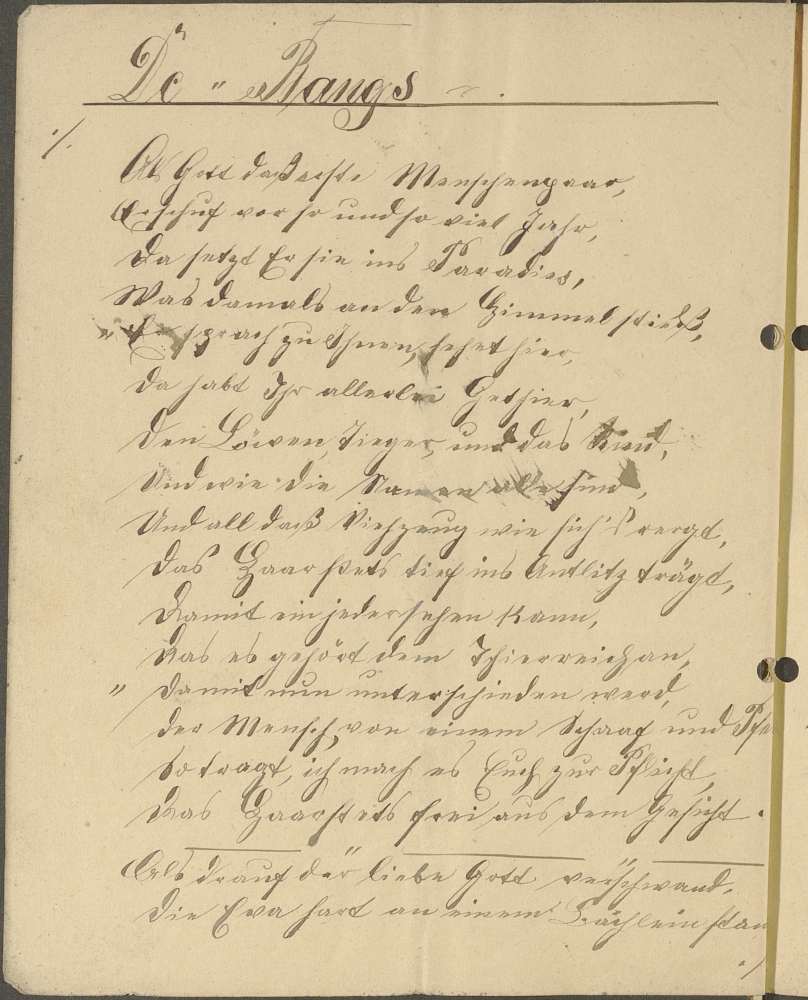 De " Bangs
./.
Als Gott daß erste Menschenpaar,
Erschuf vor so und so viel Jahr,
Da setzt Er sie ins Paradies,
Was damals an den Himmel stieß,
" Er sprach zu Ihnen, sehet hier,
Da habt Ihr allerlei Gethier,
Den Löwen, Tieger, und das Rind,
Und wie die Namen alle sind,
Und all daß Viehzeug wie sich's regt,
Das Haar stets tief ins Antlitz trägt,
Damit ein jeder sehen kann,
Das es gehört dem Thierreich an,
" Damit nun unterschieden werd,
Der Mensch, von einem Schaaf und Pfe
So tragt, ich mach es Euch zur Pflicht,
Das Haar stets frei aus dem Gesicht.
Als drauf der liebe Gott verschwand,
Die Eva hart an einem Bächlein stan
./